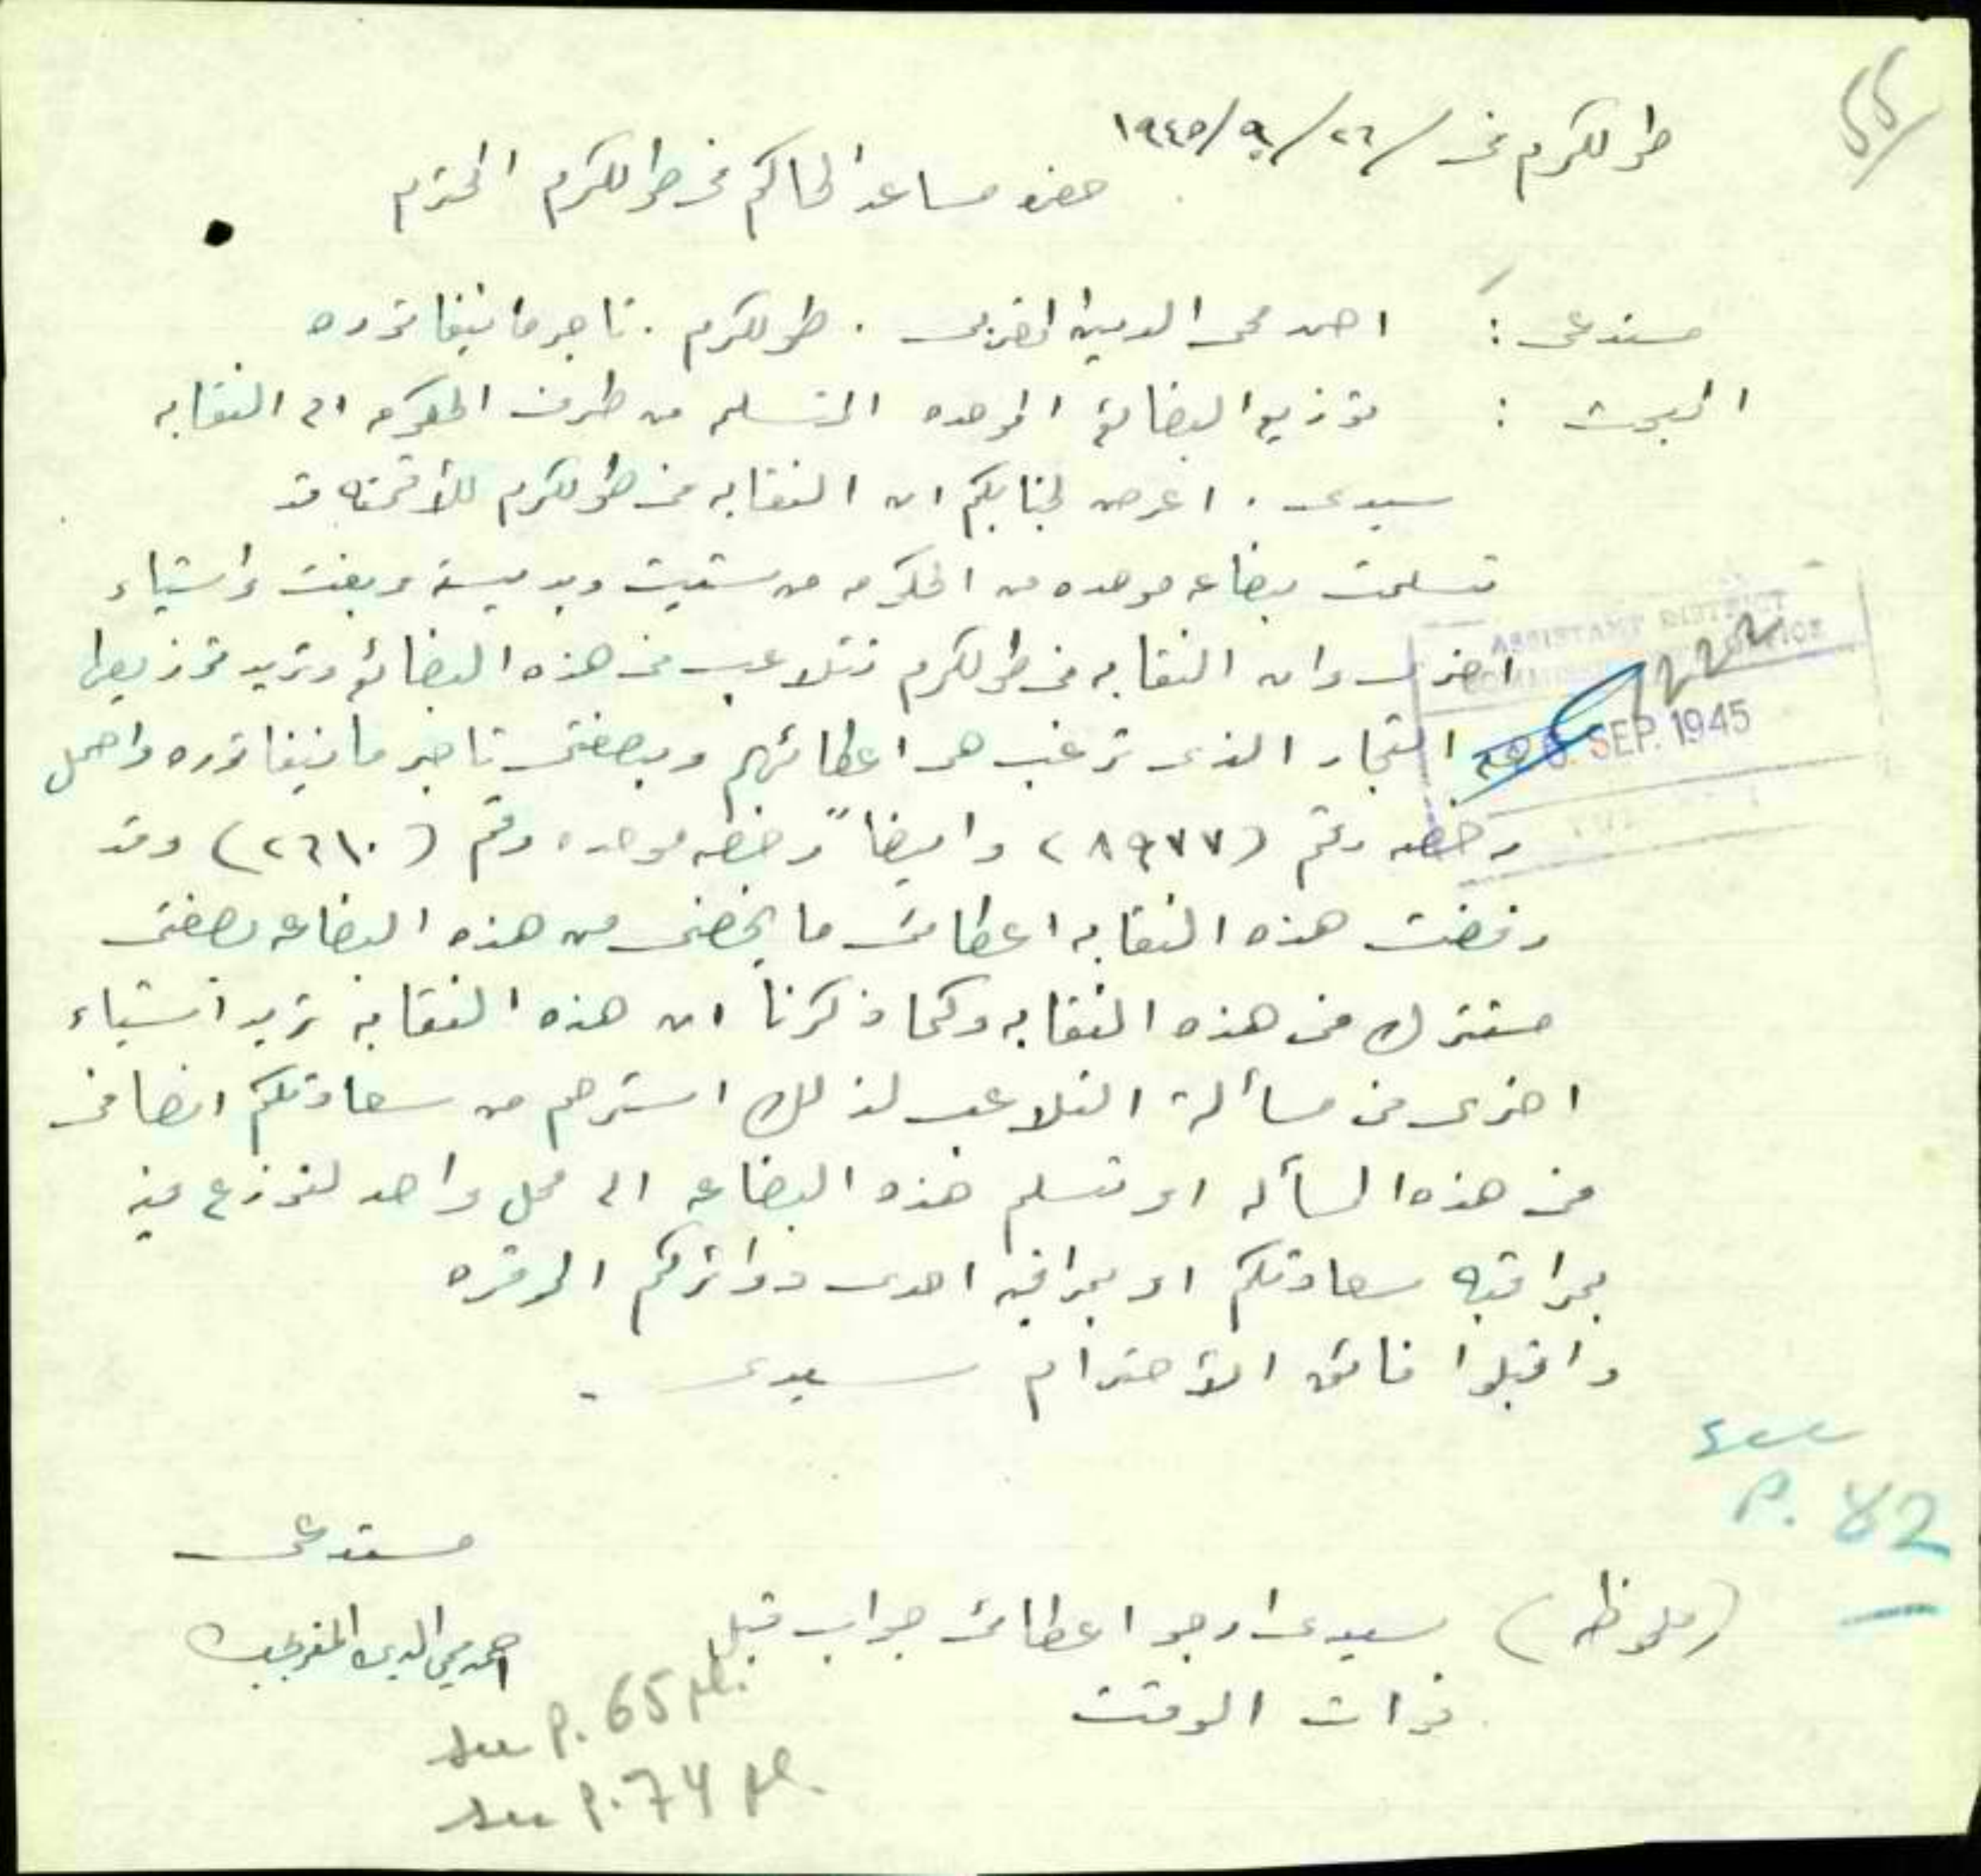 55
طولكرم في ٢٦/٩/١٩٤٥
حضرة مساعد الحاكم في طولكرم المحترم
مستدعي : احمد محي الدين المغربي . طولكرم . تاجر مانيفاتوره
المبحث : توزيع البضائع الموحده المتسلمه من طرف الحكومه الى النقابه
سيدي . اعرض لجنابكم ان النقابه في طولكرم للأقمشه قد
تسلمت بضاعه موحده من الحكومه من ستيت وبدميسة وبفت واشياء
اخرى وان النقابه في طولكرم تتلاعب في هذه البضائع وتريد توزيعها
التجار الذي ترغب هي اعطائهم وبصفتي تاجر مانيفاتوره واحمل
رخصه رقم (٨٩٧٧) وايضاً رخصه موحده رقم (٢٦١٠) وقد
رفضت هذه النقابه اعطائي ما يخصني من هذه البضاعه بصفتي
مشترك في هذه النقابه وكما ذكرنا ان هذه النقابه تريد اشياء
اخرى في مسألة التلاعب لذلك استرحم من سعادتكم انصافي
في هذه المسأله او تسلم هذه البضاعه الى محل واحد لتوزع فيه
بمراقبة سعادتكم او بمراقبه احدى دوائركم الموقره
واقبلوا فائق الأحترام سيدي .
ASSISTANT DISTRICT
COMMISSIONER'S OFFICE
26 SEP. 1945
see
P. 82
مستدعي
احمد محي الدين المغربي
(ملحوظه) سيدي ارجو اعطائي جواب قبل
فوات الوقت
see P. 65 pl.
see P. 74 pl.